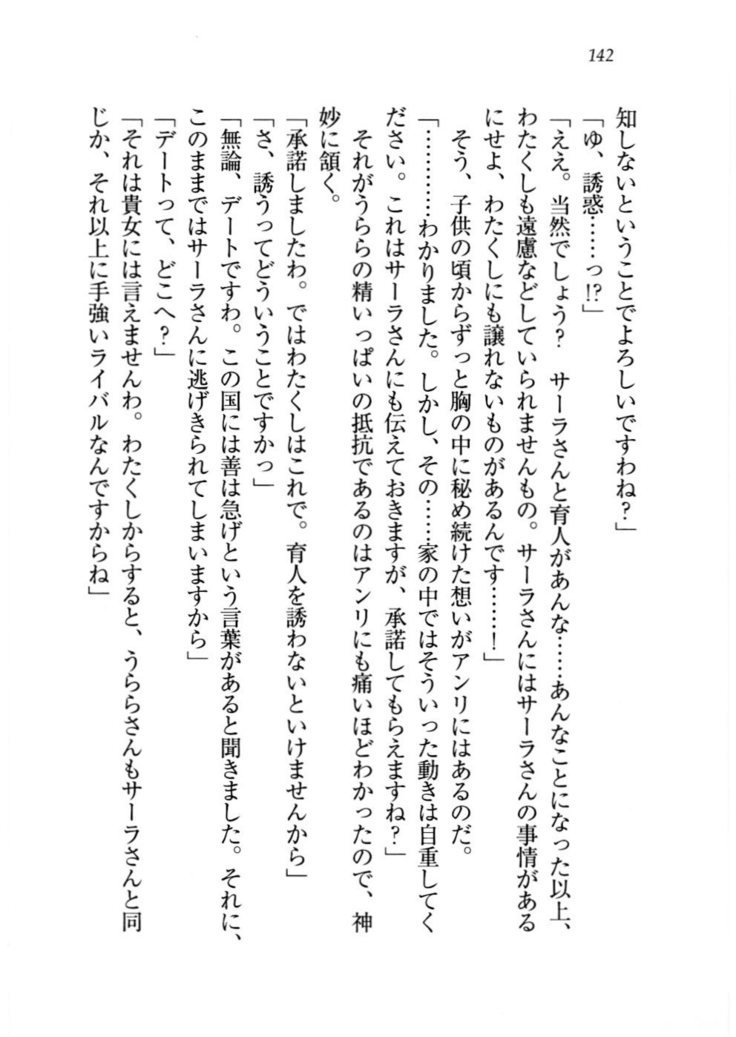 142
知しないということでよろしいですわね？」
「ゆ、誘惑……っ!?」
「ええ。当然でしょう？　サーラさんと育人があんな……あんなことになった以上、
わたくしも遠慮などしていられませんもの。サーラさんにはサーラさんの事情がある
にせよ、わたくしにも譲れないものがあるんです……！」
そう、子供の頃からずっと胸の中に秘め続けた想いがアンリにはあるのだ。
「…………わかりました。しかし、その……家の中ではそういった動きは自重してく
ださい。これはサーラさんにも伝えておきますが、承諾してもらえますね？」
それがうららの精いっぱいの抵抗であるのはアンリにも痛いほどわかったので、神
妙に頷く。
「承諾しましたわ。ではわたくしはこれで。育人を誘わないといけませんから」
「さ、誘うってどういうことですかっ」
「無論、デートですわ。この国には善は急げという言葉があると聞きました。それに、
このままではサーラさんに逃げきられてしまいますから」
「デートって、どこへ？」
「それは貴女には言えませんわ。わたくしからすると、うららさんもサーラさんと同
じか、それ以上に手強いライバルなんですからね」